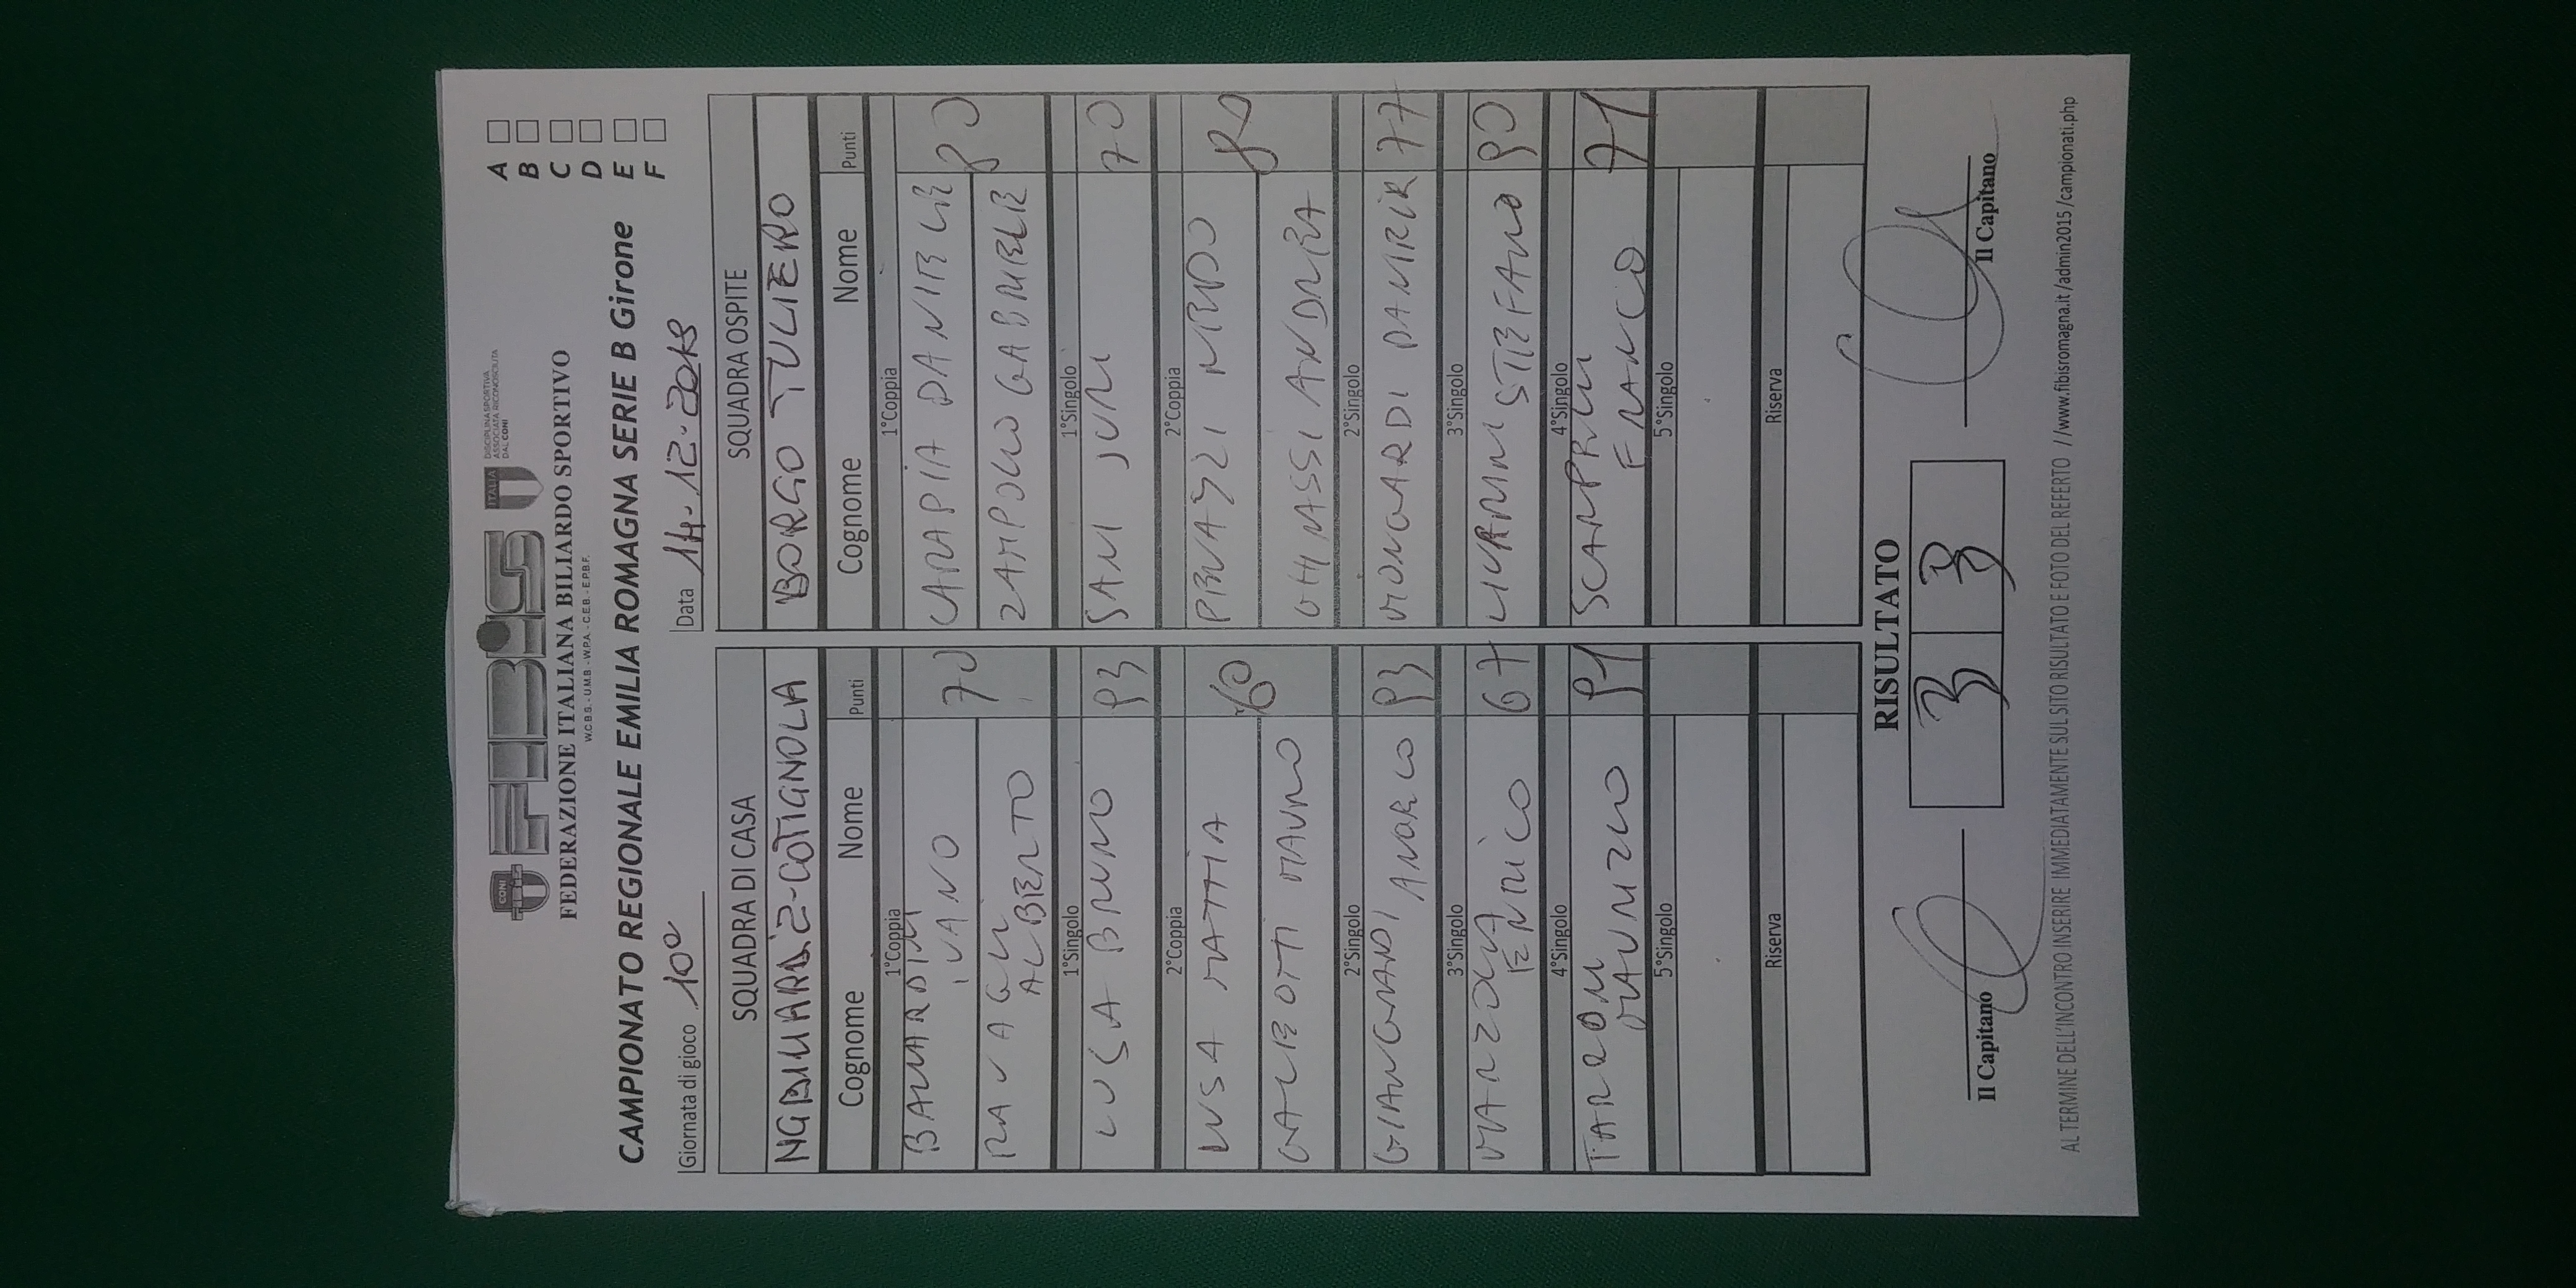 CONI
FIBiS
ITALIA
DISCIPLINA SPORTIVA
ASSOCIATA RICONOSCIUTA
DAL CONI
FEDERAZIONE ITALIANA BILIARDO SPORTIVO
W.C.B.S. - U.M.B. - W.P.A. - C.E.B. - E.P.B.F.
CAMPIONATO REGIONALE EMILIA ROMAGNA SERIE B Girone
A
B
C
D
E
F
Giornata di gioco 10°
Data 14-12-2018
SQUADRA DI CASA
COTIGNOLA
Cognome Nome Punti
1°Coppia
IVANO 70
ALBERTO
1°Singolo
LUSA BRUNO 93
2°Coppia
LUSA MATTIA 60
GALEOTTI MAURO
2°Singolo
93
3°Singolo
ENRICO 67
4°Singolo
TARRONI MAURIZIO 91
5°Singolo
Riserva
SQUADRA OSPITE
BORGO TULIERO
Cognome Nome Punti
1°Coppia
CARAPIA DANIELE 80
ZAMPOLLO GABRIELE
1°Singolo
SANI JURI 70
2°Coppia
80
GHINASSI ANDREA
2°Singolo
MONGARDI 77
3°Singolo
STEFANO 90
4°Singolo
FRANCO 71
5°Singolo
Riserva
RISULTATO
3 3
Il Capitano
Il Capitano
AL TERMINE DELL'INCONTRO INSERIRE IMMEDIATAMENTE SUL SITO RISULTATO E FOTO DEL REFERTO //www.fibisromagna.it/admin2015/campionati.php